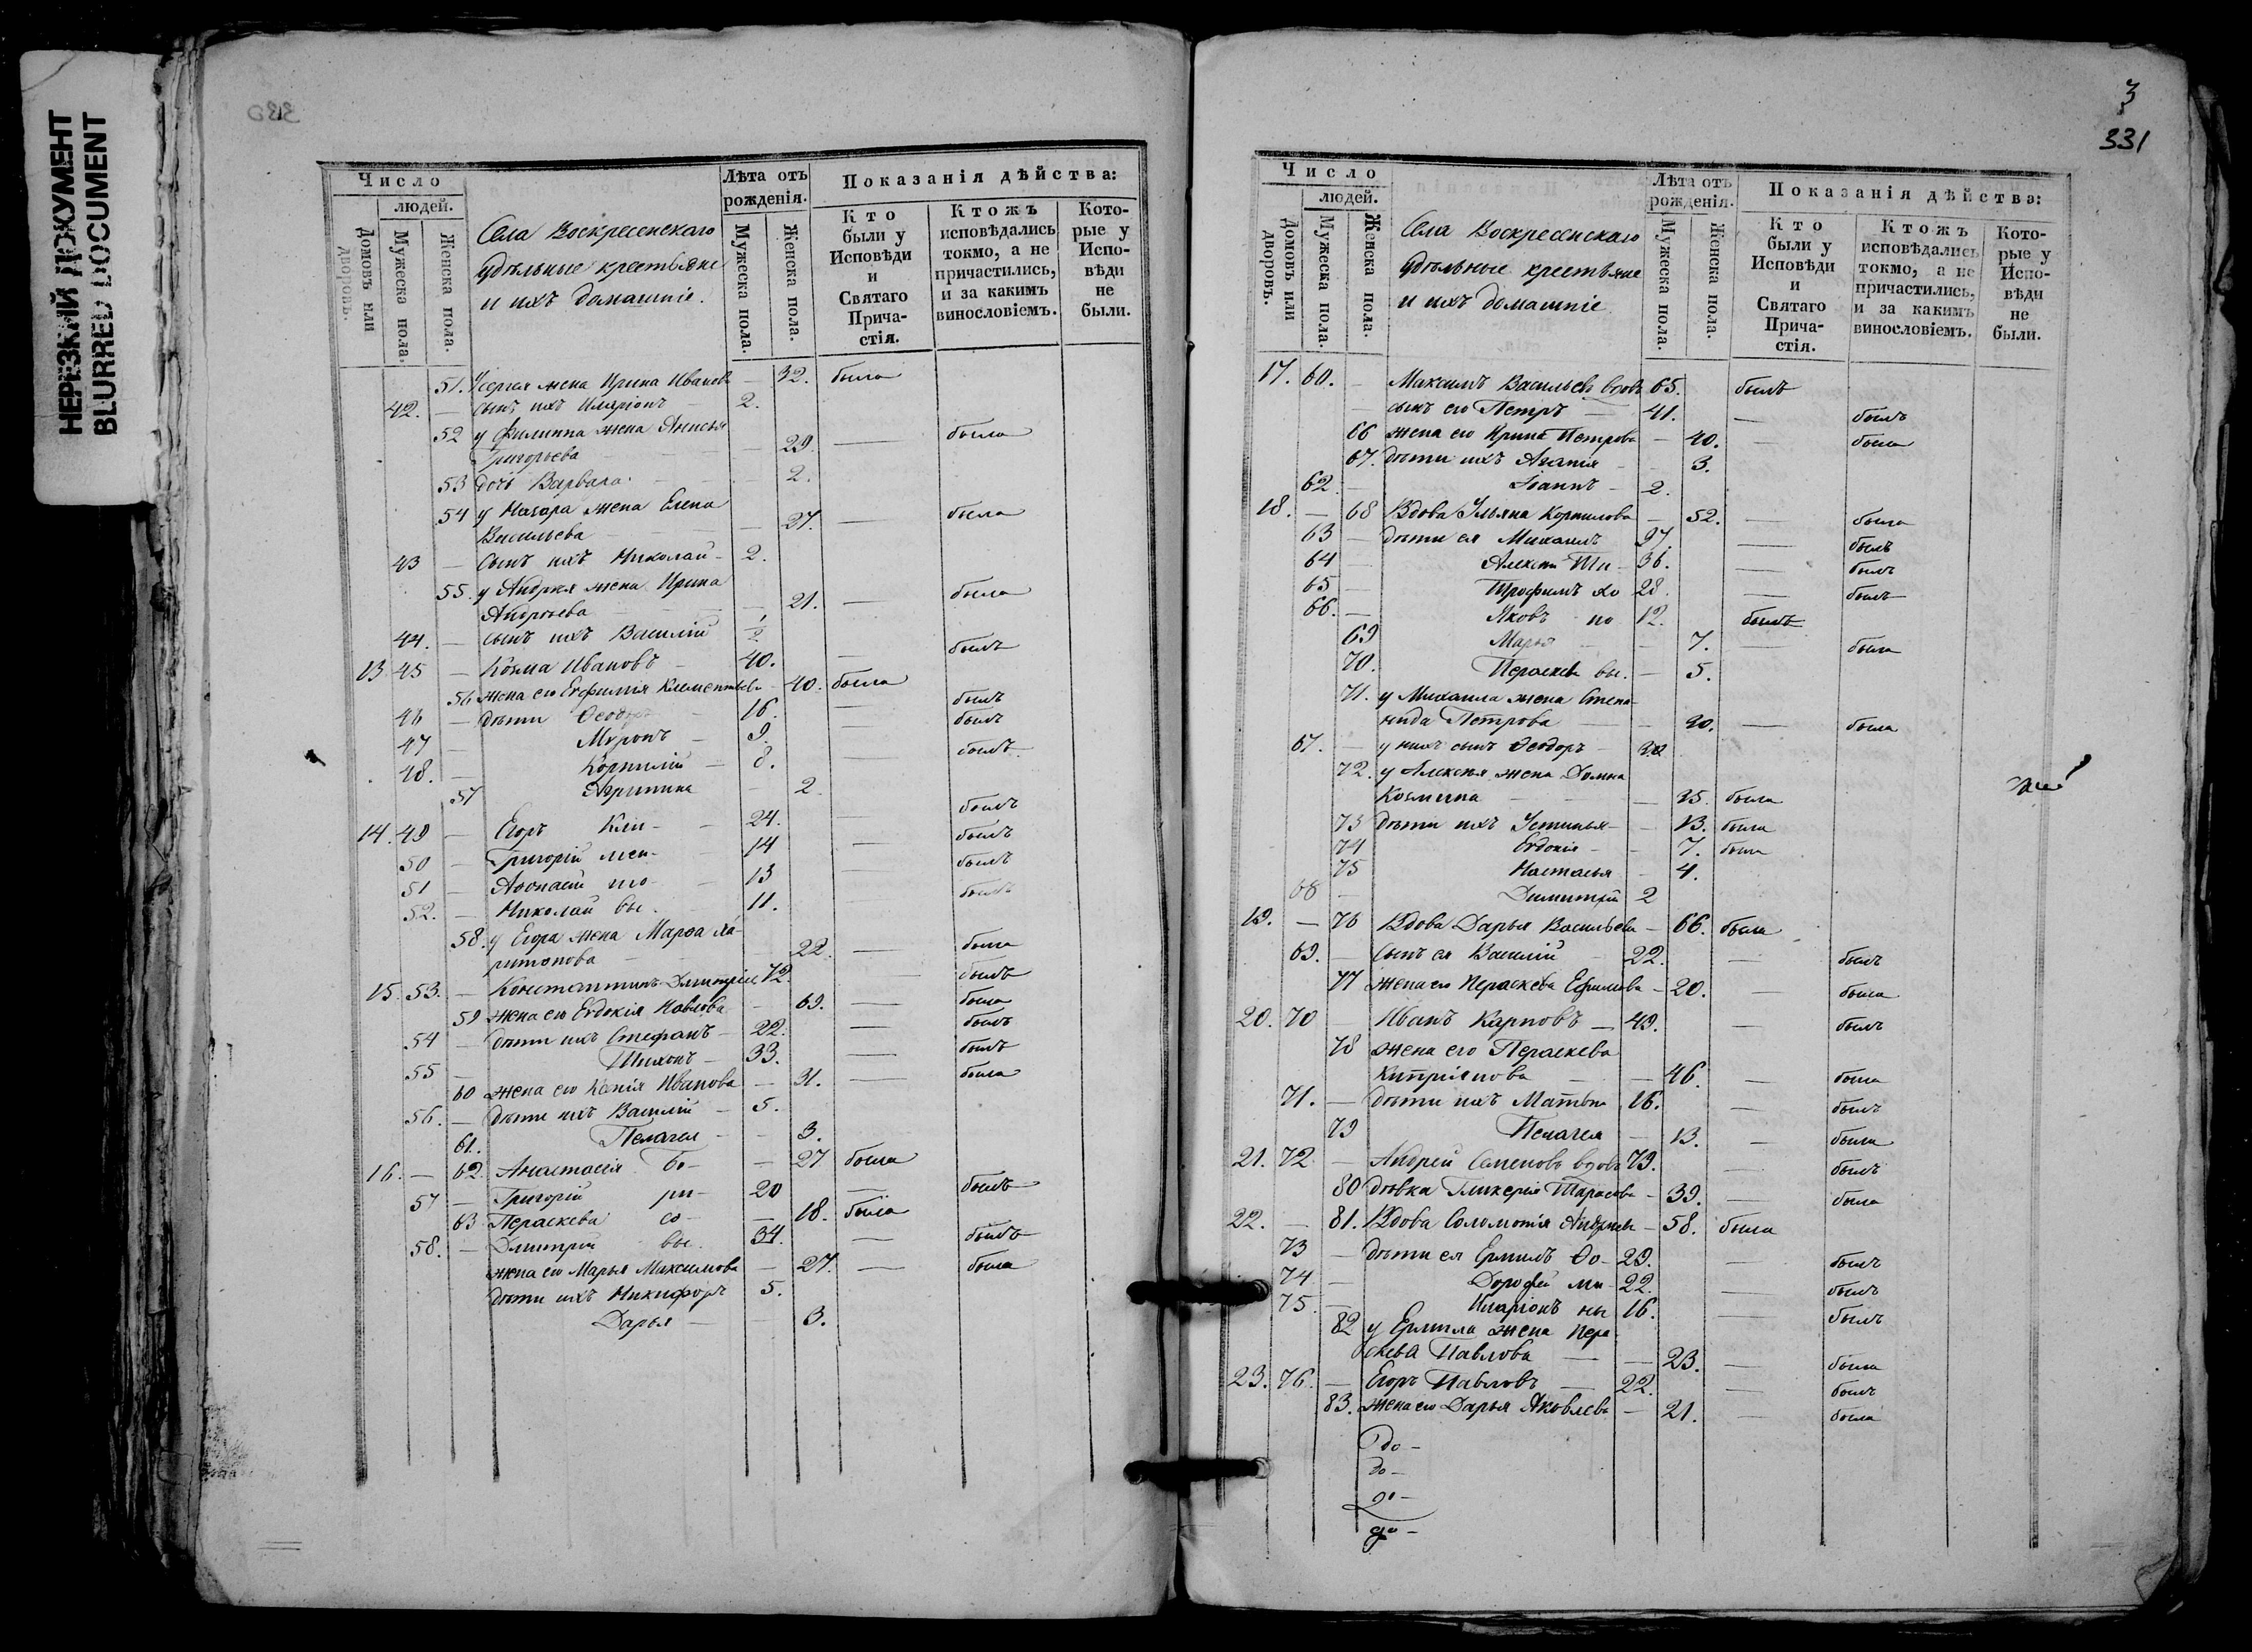 НЕРЕЗКИЙ ДОКУМЕНТ
BLURRED DOCUMENT
330
Число
людей.
Домовъ или дворовъ.
Мужеска пола.
Женска пола.
Села Воскресенскаго
удѣльные крестьяне
и ихъ домашніе.
Лѣта отъ рожденія.
Мужеска пола.
Женска пола.
Показанія дѣйства:
Кто были у Исповѣди и Святаго Причастія.
Ктожъ исповѣдались токмо, а не причастились, и за какимъ винословіемъ.
Которые у Исповѣди не были.
51. У Сергея жена Ирина Иванова — 32. была
42. — сынъ ихъ Иларіонъ — 2.
52 у Филиппа жена Анисья
Григорьева — 29. — была
53 дочь Варвара — 2.
54 у Назара жена Елена
Васильева — 27. — была
43 — Сынъ ихъ Николай — 2.
55. у Андрея жена Ирина
Андреева — 21. — была
44. — сынъ ихъ Василій 1/2
13 45 — Козма Ивановъ — 40. — былъ
56 жена его Евфимія Климентьева — 40. была
46 — дѣти Ѳеодоръ — 16. — былъ
47 — Миронъ — 9. — былъ
48. — Корнилій — 8. — былъ
57 Агрипина — 2.
14. 49 — Егоръ Кли- — 24. — былъ
50 — Григорій мен- 14 — былъ
51 — Аѳонасій то- — 13 — былъ
52. — Николай вы. 11. — былъ
58. у Егора жена Марѳа Ха-
ритонова — 22. — была
15. 53. — Константинъ Дмитріев 72. — былъ
59 жена его Евдокія Павлова — 69. — была
54 — дѣти ихъ Стефанъ — 22. — былъ
55 — Тихонъ — 33. — былъ
60 жена его Ксенія Иванова — 31. — была
56. — дѣти ихъ Василій — 5.
61. Пелагея — 3.
16. — 62. Анастасія Бо- — 27 была
57 — Григорій ри- 20 — былъ
63 Параскева со- — 18. была
58. — Дмитрій вы. 34. — былъ
жена его Марья Максимова — 27. — была
дѣти ихъ Никифоръ 5.
Дарья — 3.
3
331
Число
людей.
Домовъ или дворовъ.
Мужеска пола.
Женска пола.
Села Воскресенскаго
удѣльные крестьяне
и ихъ домашніе
Лѣта отъ рожденія.
Мужеска пола.
Женска пола.
Показанія дѣйства:
Кто были у Исповѣди и Святаго Причастія.
Ктожъ исповѣдались токмо, а не причастились, и за какимъ винословіемъ.
Которые у Исповѣди не были.
17. 60. — Максимъ Васильевъ вдовъ 65. былъ
— сынъ его Петръ — 41. — былъ
66 жена его Ирина Петрова — 40. — была
67. дѣти ихъ Агапія — 3.
62. — Іоаннъ — 2.
18. — 68 Вдова Ульяна Корнилова — 52. — была
63 — дѣти ея Михаилъ 37. — былъ
64 — Алексѣй Ти- 36. — былъ
65 — Трофимъ хо 28. — былъ
66. — Яковъ но 12. былъ
69 Марья — 7. — была
70. Параскева вы. — 5.
71. у Михаила жена Степа-
нида Петрова — 30. — была
67. — у нихъ сынъ Ѳеодоръ
72. у Алексѣя жена Домна
Козмина — 35. была
73 дѣти ихъ Устинья — 13. была
74 Евдокія — 7. была
75 Настасья — 4.
68 — Димитрій 2
19. — 76 Вдова Дарья Васильева — 66. была
69. — Сынъ ея Василій 22. — былъ
77 жена его Параскева Ефимова — 20. — была
20. 70 — Иванъ Карповъ — 49. — былъ
78 жена его Параскева
Кипріянова — 46. — была
71. — дѣти ихъ Матвѣй 16. — былъ
79 Пелагея — 13. — была
21. 72 — Андрей Семеновъ вдовъ 79. — былъ
80 дѣвка Гликерія Тарасова — 39. — была
22. — 81. Вдова Соломонія Андреева — 58. была
73 — дѣти ея Ермилъ Ѳо- 29. — былъ
74 — Дорофей ми- 22. — былъ
75. — Иларіонъ ны 16. — былъ
82 у Ермила жена Пара-
скева Павлова — 23. — была
23. 76. — Егоръ Павловъ — 22. — былъ
83. жена его Дарья Яковлева — 21. — была
до-
до-
до-
до-